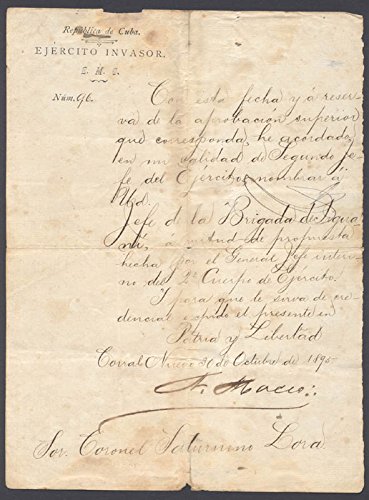 República de Cuba.
EJÉRCITO INVASOR.
E. M. G.
Núm. 96.
Con esta fecha y á reser-
va de la aprobación superior
que corresponda, he acordado
en mi calidad de Segundo je-
fe del Ejército, nombrar á
Ud.
Jefe de la Brigada de Jigua
ní, á virtud de propuesta
hecha por el General Jefe interi-
no del 2º Cuerpo de Ejército.
Y para que le sirva de cre-
dencial expido el presente en
Patria y Libertad
Corral Nuevo 20 de Octubre de 1895
A. Maceo
Sor. Coronel Saturnino Lora